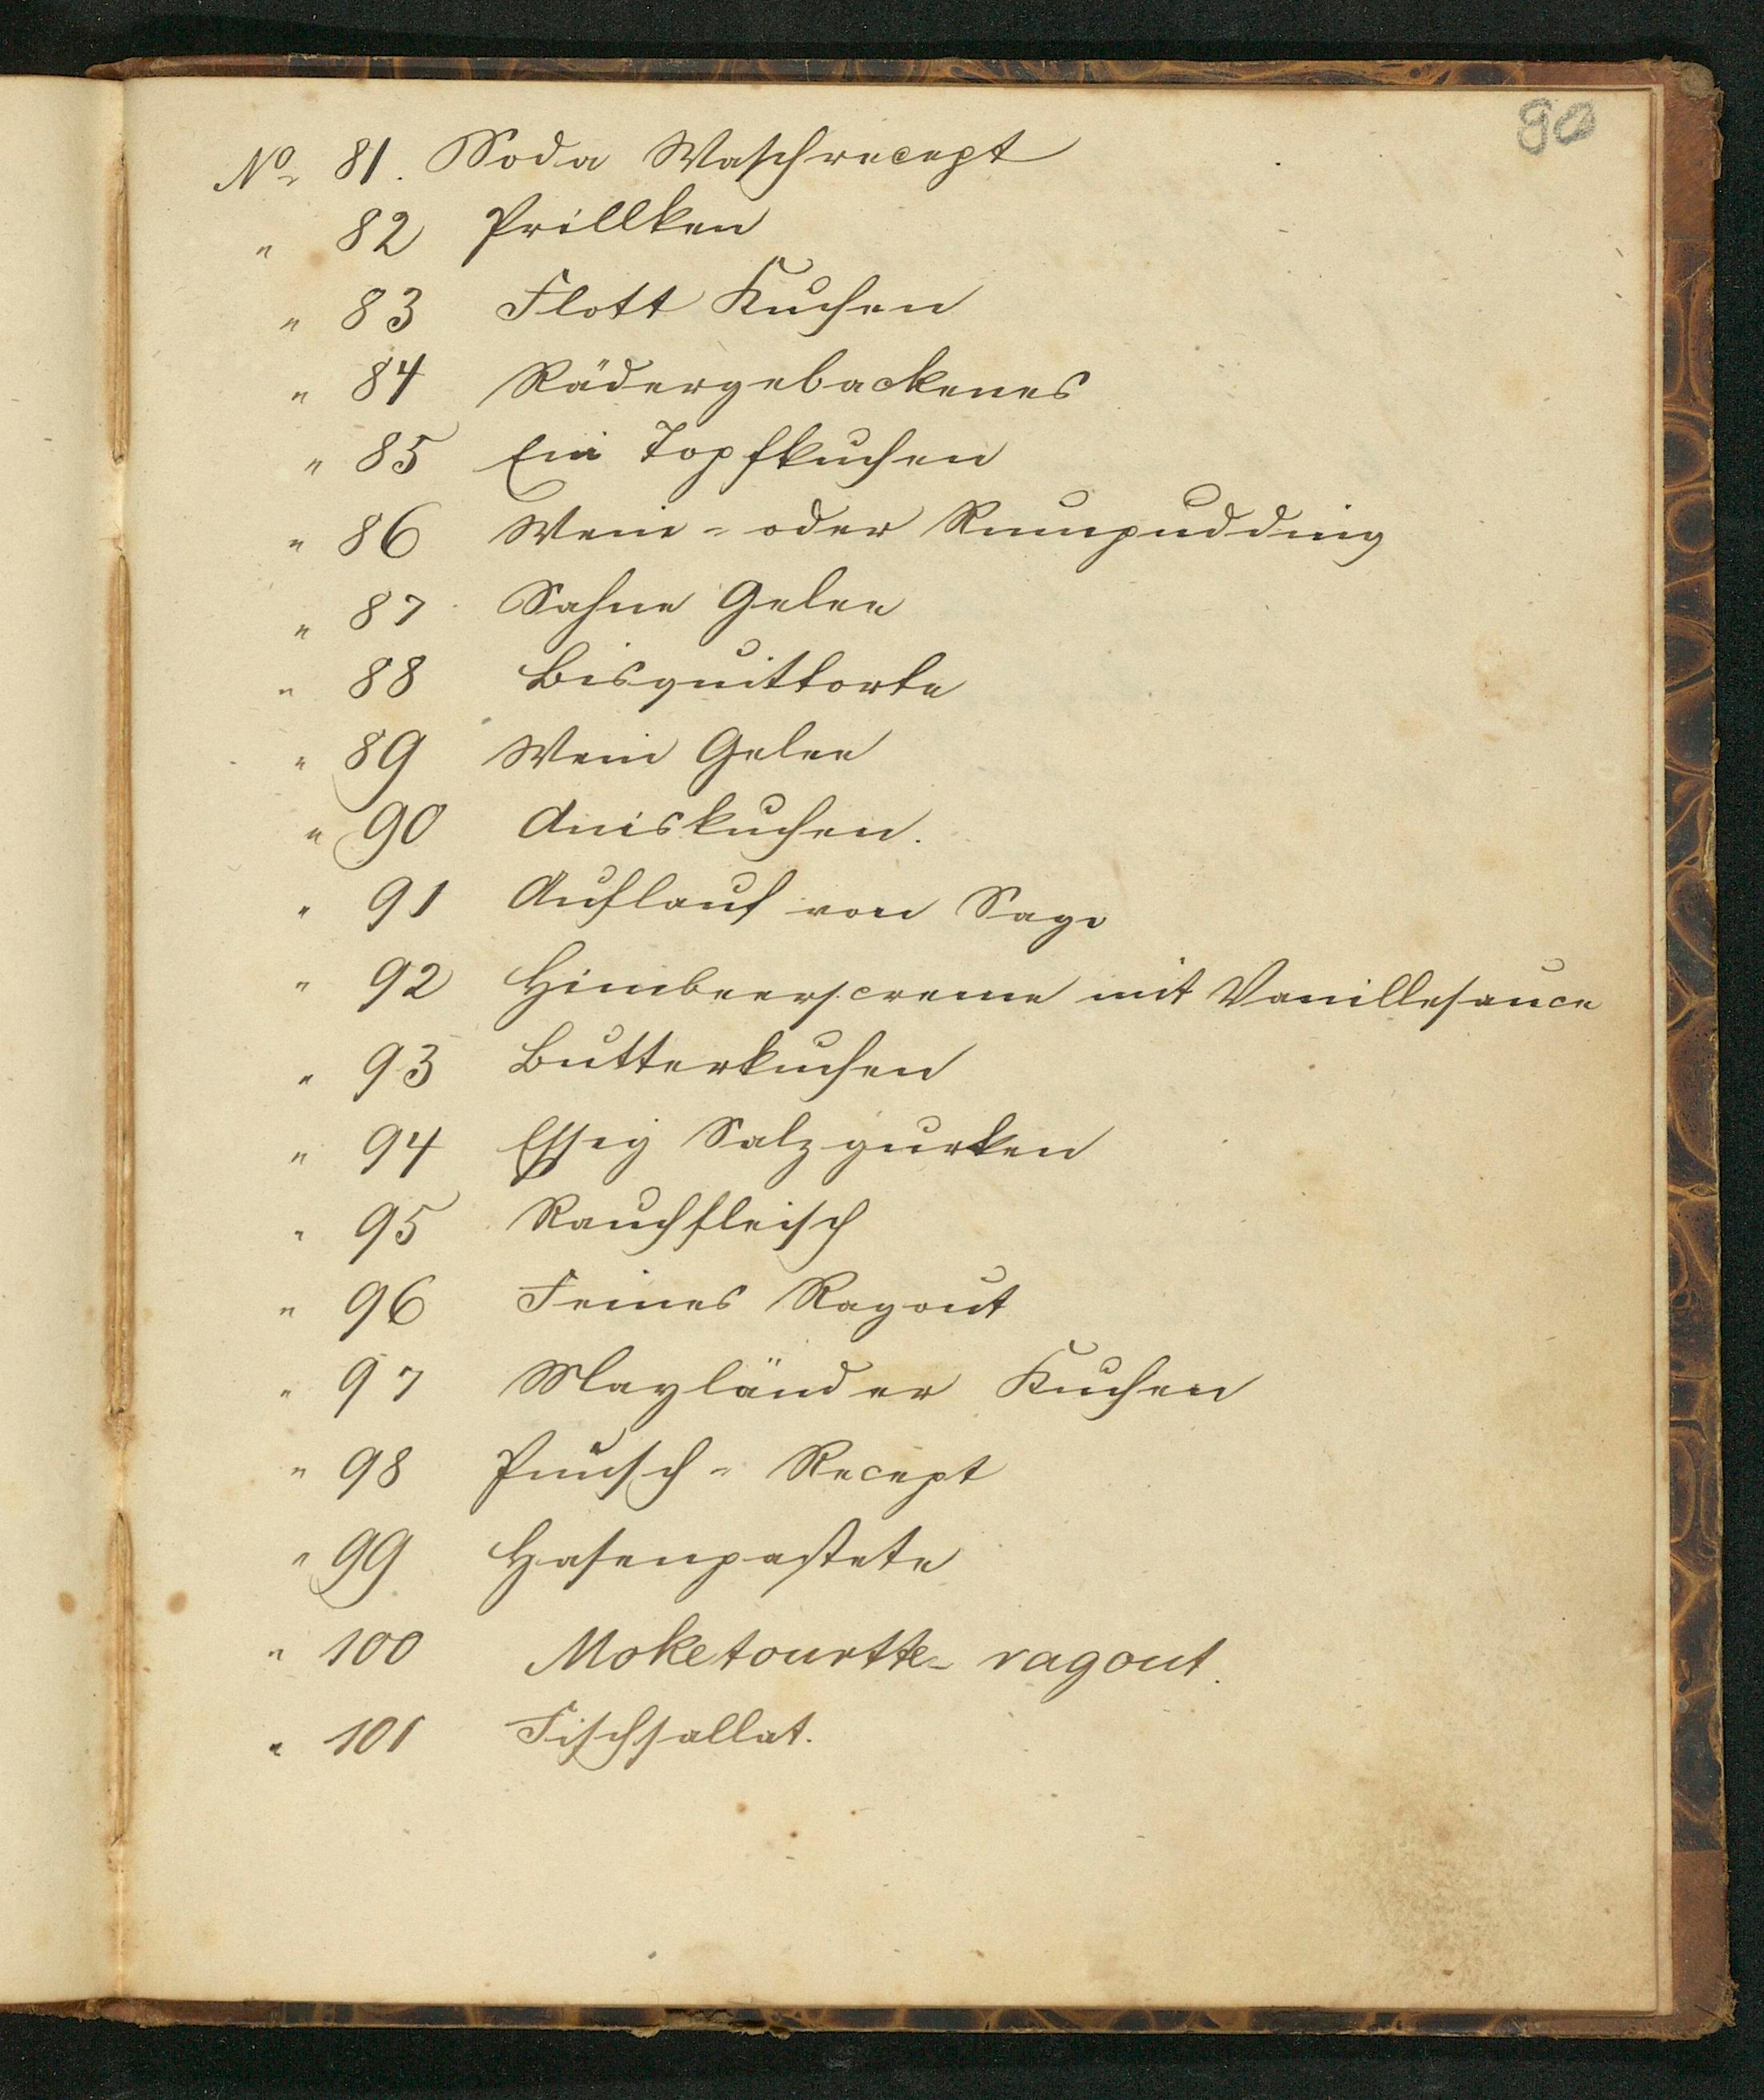 90
No 81. Soda Waschrecept
" 82 Prillken
" 83 Flott Kuchen
" 84 Rädergebackenes
" 85 Ein Topfkuchen
" 86 Wein- oder Rumpudding
" 87 Sahne Gelee
" 88 Bisquittorte
" 89 Wein Gelee
" 90 Aniskuchen.
" 91 Auflauf von Sago
" 92 Himbeerscreme mit Vanillesauce
" 93 Butterkuchen
" 94 Essig Salzgurken
" 95 Rauchfleisch
" 96 Feines Ragout
" 97 Mayländer Kuchen
" 98 Punsch- Recept
" 99 Hasenpastete
" 100 Moketourtte- ragout.
" 101 Fischsallat.